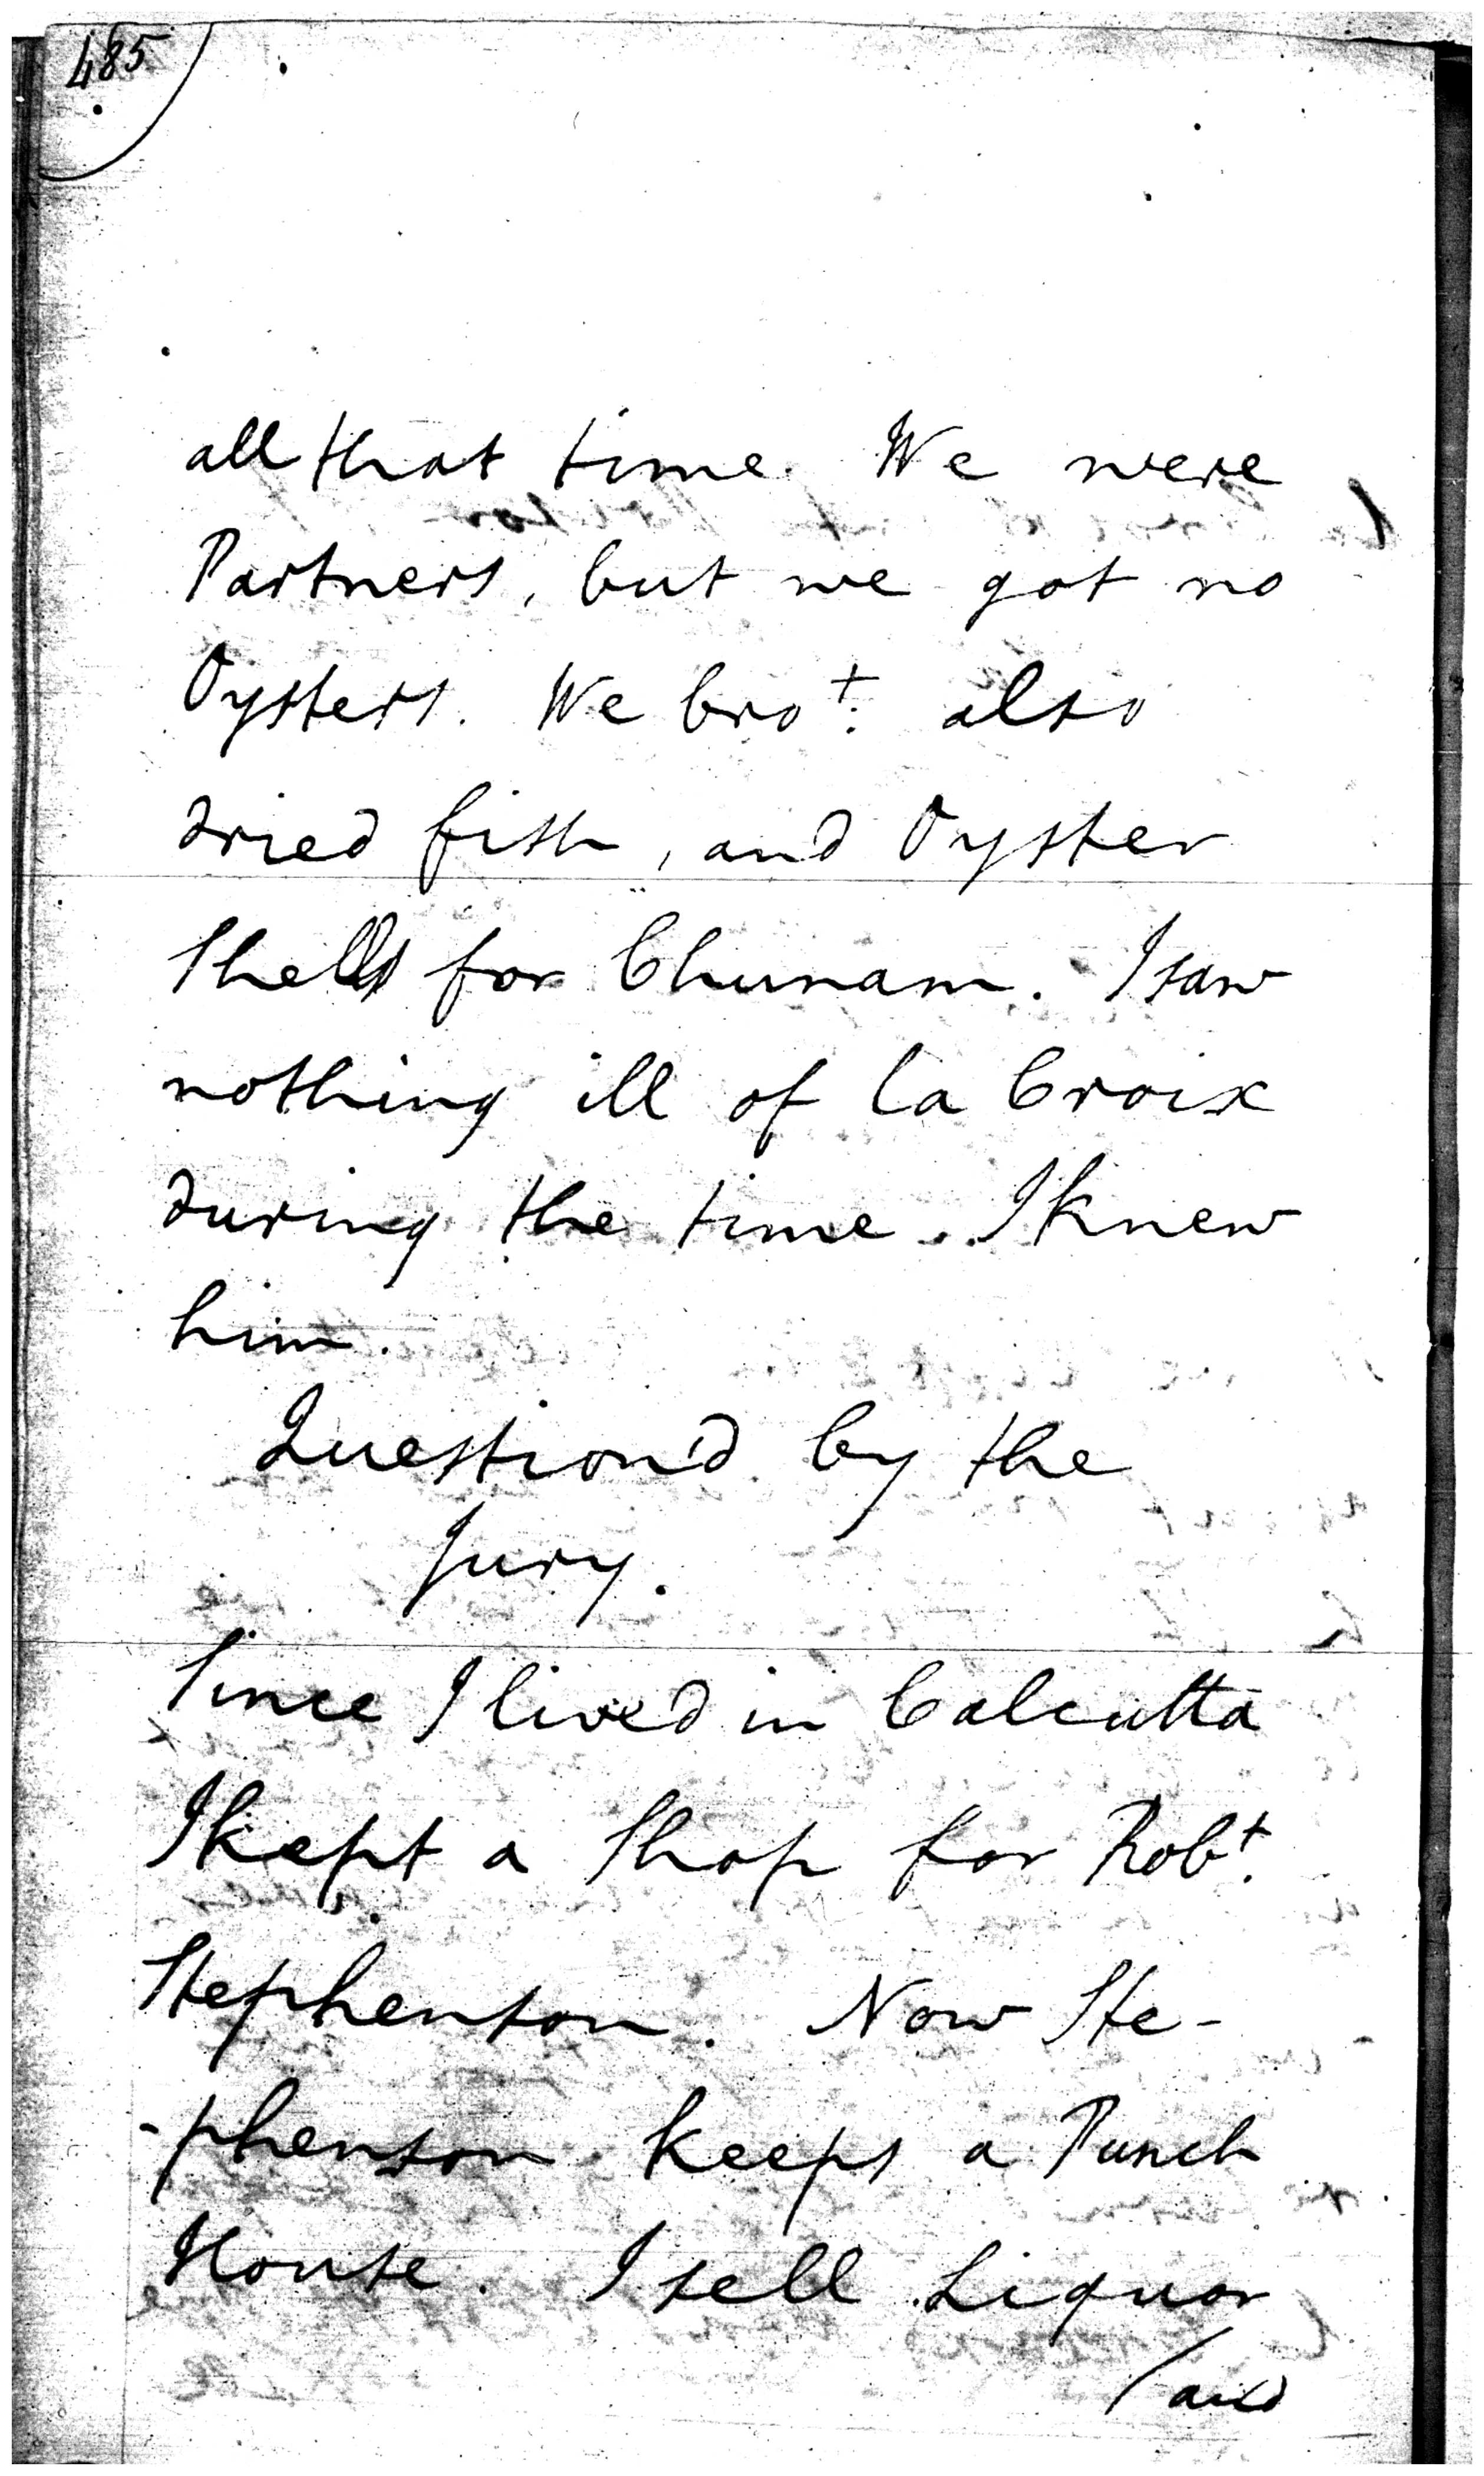 485
all that time. We were
Partners, but we got no
Oysters. We bro.t also
dried fish, and Oyster
Shells for Chunam. I saw
nothing ill of La Croix
during the time. I knew
him.
Question'd by the
Jury.
Since I lived in Calcutta
I kept a Shop for Rob.t
Stephenson. Now Ste-
-phenson keeps a Punch
House. I sell Liquor
/and